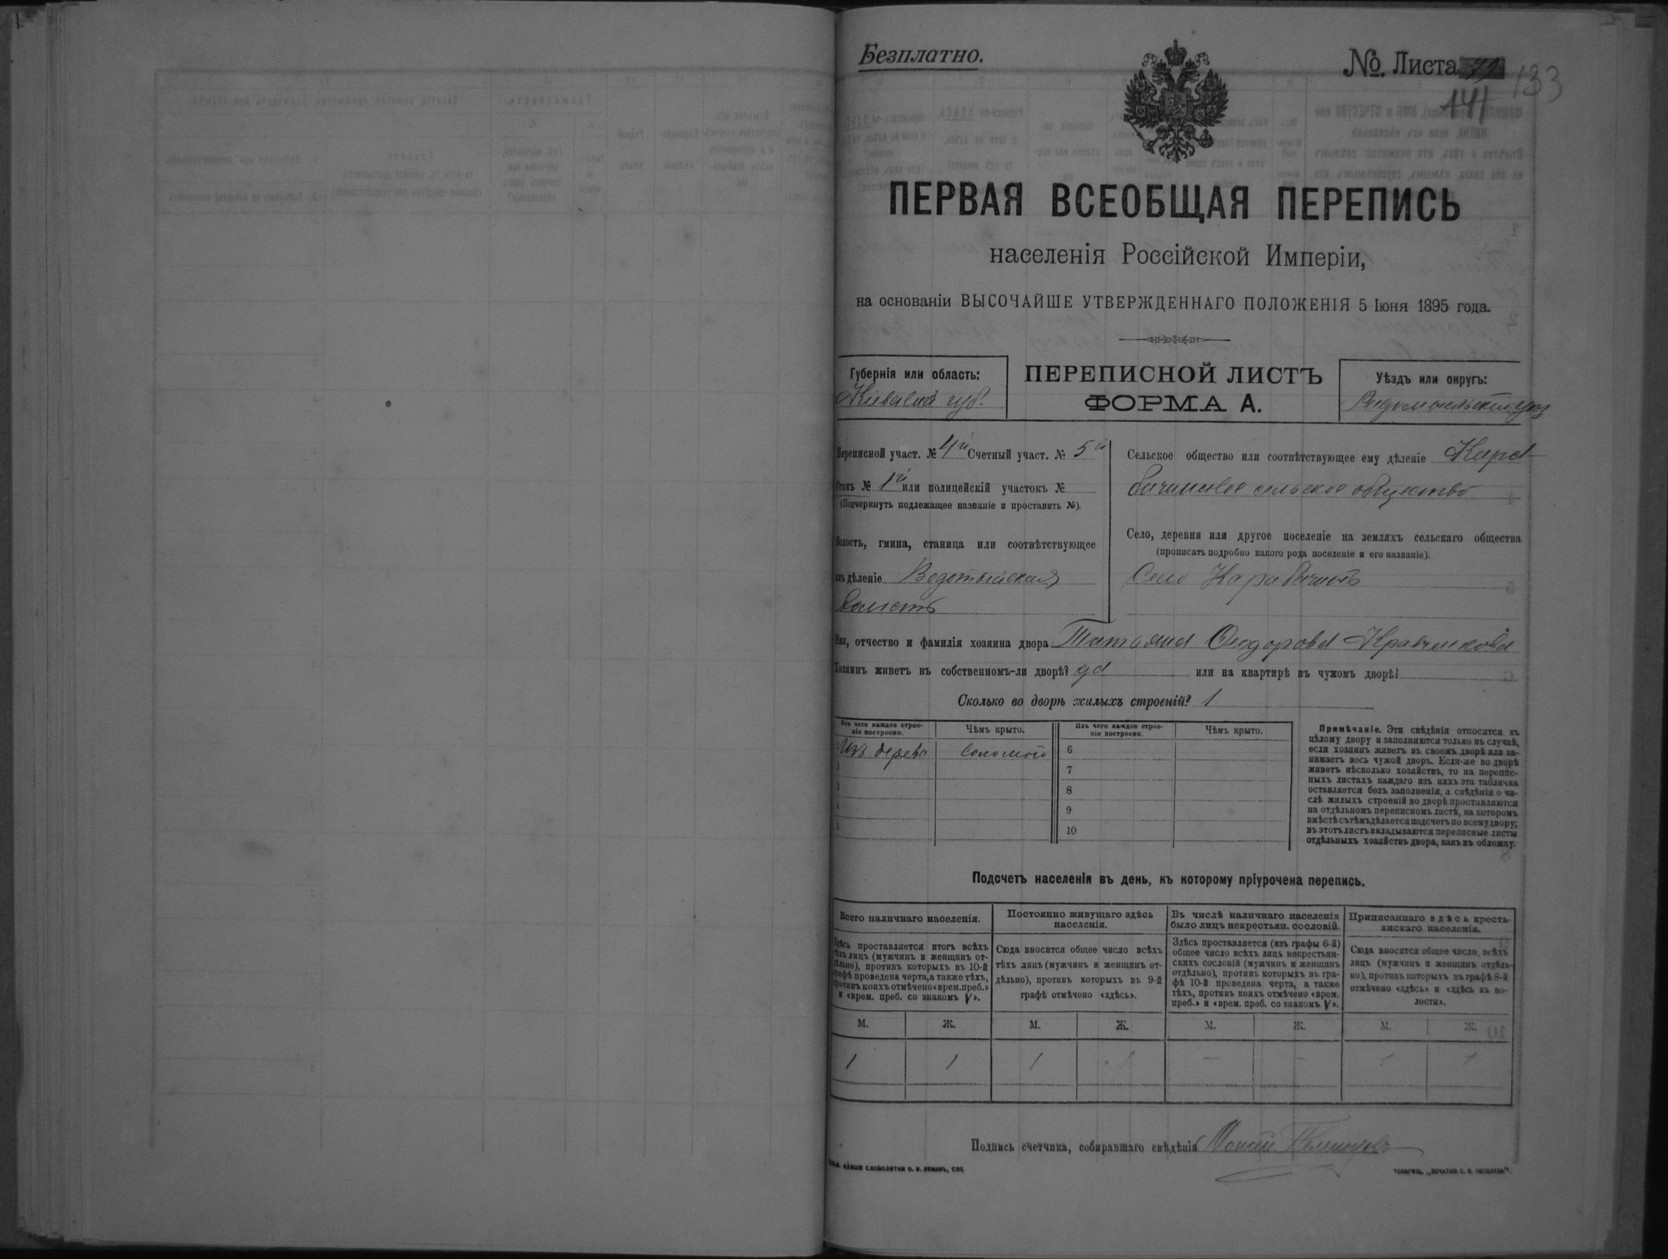 Безплатно.
№ Листа
141
133
ПЕРВАЯ ВСЕОБЩАЯ ПЕРЕПИСЬ
населенія Россійской Имперіи,
на основаніи ВЫСОЧАЙШЕ УТВЕРЖДЕННАГО ПОЛОЖЕНІЯ 5 Іюня 1895 года.
Губернія или область:
Кіевская губ.
ПЕРЕПИСНОЙ ЛИСТЪ
ФОРМА А.
Уѣздъ или округъ:
Радомысльскій уѣзд
Переписной участ. № 4й Счетный участ. № 5й
Станъ № 1й или полицейскій участокъ №
(Подчеркнуть подлежащее названіе и проставить №).
Волость, гмина, станица или соотвѣтствующее
имъ дѣленіе
волость
Сельское общество или соотвѣтствующее ему дѣленіе Кара-
бачинское сельское общество
Село, деревня или другое поселеніе на земляхъ сельскаго общества
(прописать подробно какого рода поселеніе и его названіе).
Село Карабачинъ
Имя, отчество и фамилія хозяина двора Татьяна Ѳеодорова Кравченкова
Хозяинъ живетъ въ собственномъ-ли дворѣ? да или на квартирѣ въ чужомъ дворѣ?
Сколько во дворѣ жилыхъ строеній? 1
Изъ чего каждое строе-
ніе построено.
Чѣмъ крыто.
Изъ чего каждое строе-
ніе построено.
Чѣмъ крыто.
изъ дерева соломой 6
2 7
3 8
4 9
5 10
Примѣчаніе. Эти свѣдѣнія относятся къ
цѣлому двору и заполняются только въ случаѣ,
если хозяинъ живетъ въ своемъ дворѣ или за-
нимаетъ весь чужой дворъ. Если-же во дворѣ
живетъ нѣсколько хозяйствъ, то на перепис-
ныхъ листахъ каждаго изъ нихъ эта табличка
оставляется безъ заполненія, а свѣдѣнія о чи-
слѣ жилыхъ строеній во дворѣ проставляются
на отдѣльномъ переписномъ листѣ, на которомъ
вмѣстѣ съ тѣмъ дѣлается подсчетъ по всему двору;
въ этотъ листъ вкладываются переписные листы
отдѣльныхъ хозяйствъ двора, какъ въ обложку.
Подсчетъ населенія въ день, къ которому пріурочена перепись.
Всего наличнаго населенія.
Здѣсь проставляется итогъ всѣхъ
тѣхъ лицъ (мужчинъ и женщинъ от-
дѣльно), противъ которыхъ въ 10-й
графѣ проведена черта, а также тѣхъ,
противъ коихъ отмѣчено «врем. преб.»
и «врем. преб. со знакомъ V».
Постоянно живущаго здѣсь
населенія.
Сюда вносится общее число всѣхъ
тѣхъ лицъ (мужчинъ и женщинъ от-
дѣльно), противъ которыхъ въ 9-й
графѣ отмѣчено «здѣсь».
Въ числѣ наличнаго населенія
было лицъ некрестьян. сословій.
Здѣсь проставляется (изъ графы 6-й)
общее число всѣхъ лицъ некрестьян-
скихъ сословій (мужчинъ и женщинъ
отдѣльно), противъ которыхъ въ гра-
фѣ 10-й проведена черта, а также
тѣхъ, противъ коихъ отмѣчено «врем.
преб.» и «врем. преб. со знакомъ V».
Приписаннаго здѣсь кресть-
янскаго населенія.
Сюда вносится общее число всѣхъ
лицъ (мужчинъ и женщинъ отдѣль-
но), противъ которыхъ въ графѣ 8-й
отмѣчено «здѣсь» и «здѣсь къ во-
лости».
М. Ж. М. Ж. М. Ж. М. Ж.
1 1 1 1 – – 1 1
Подпись счетчика, собиравшаго свѣдѣнія